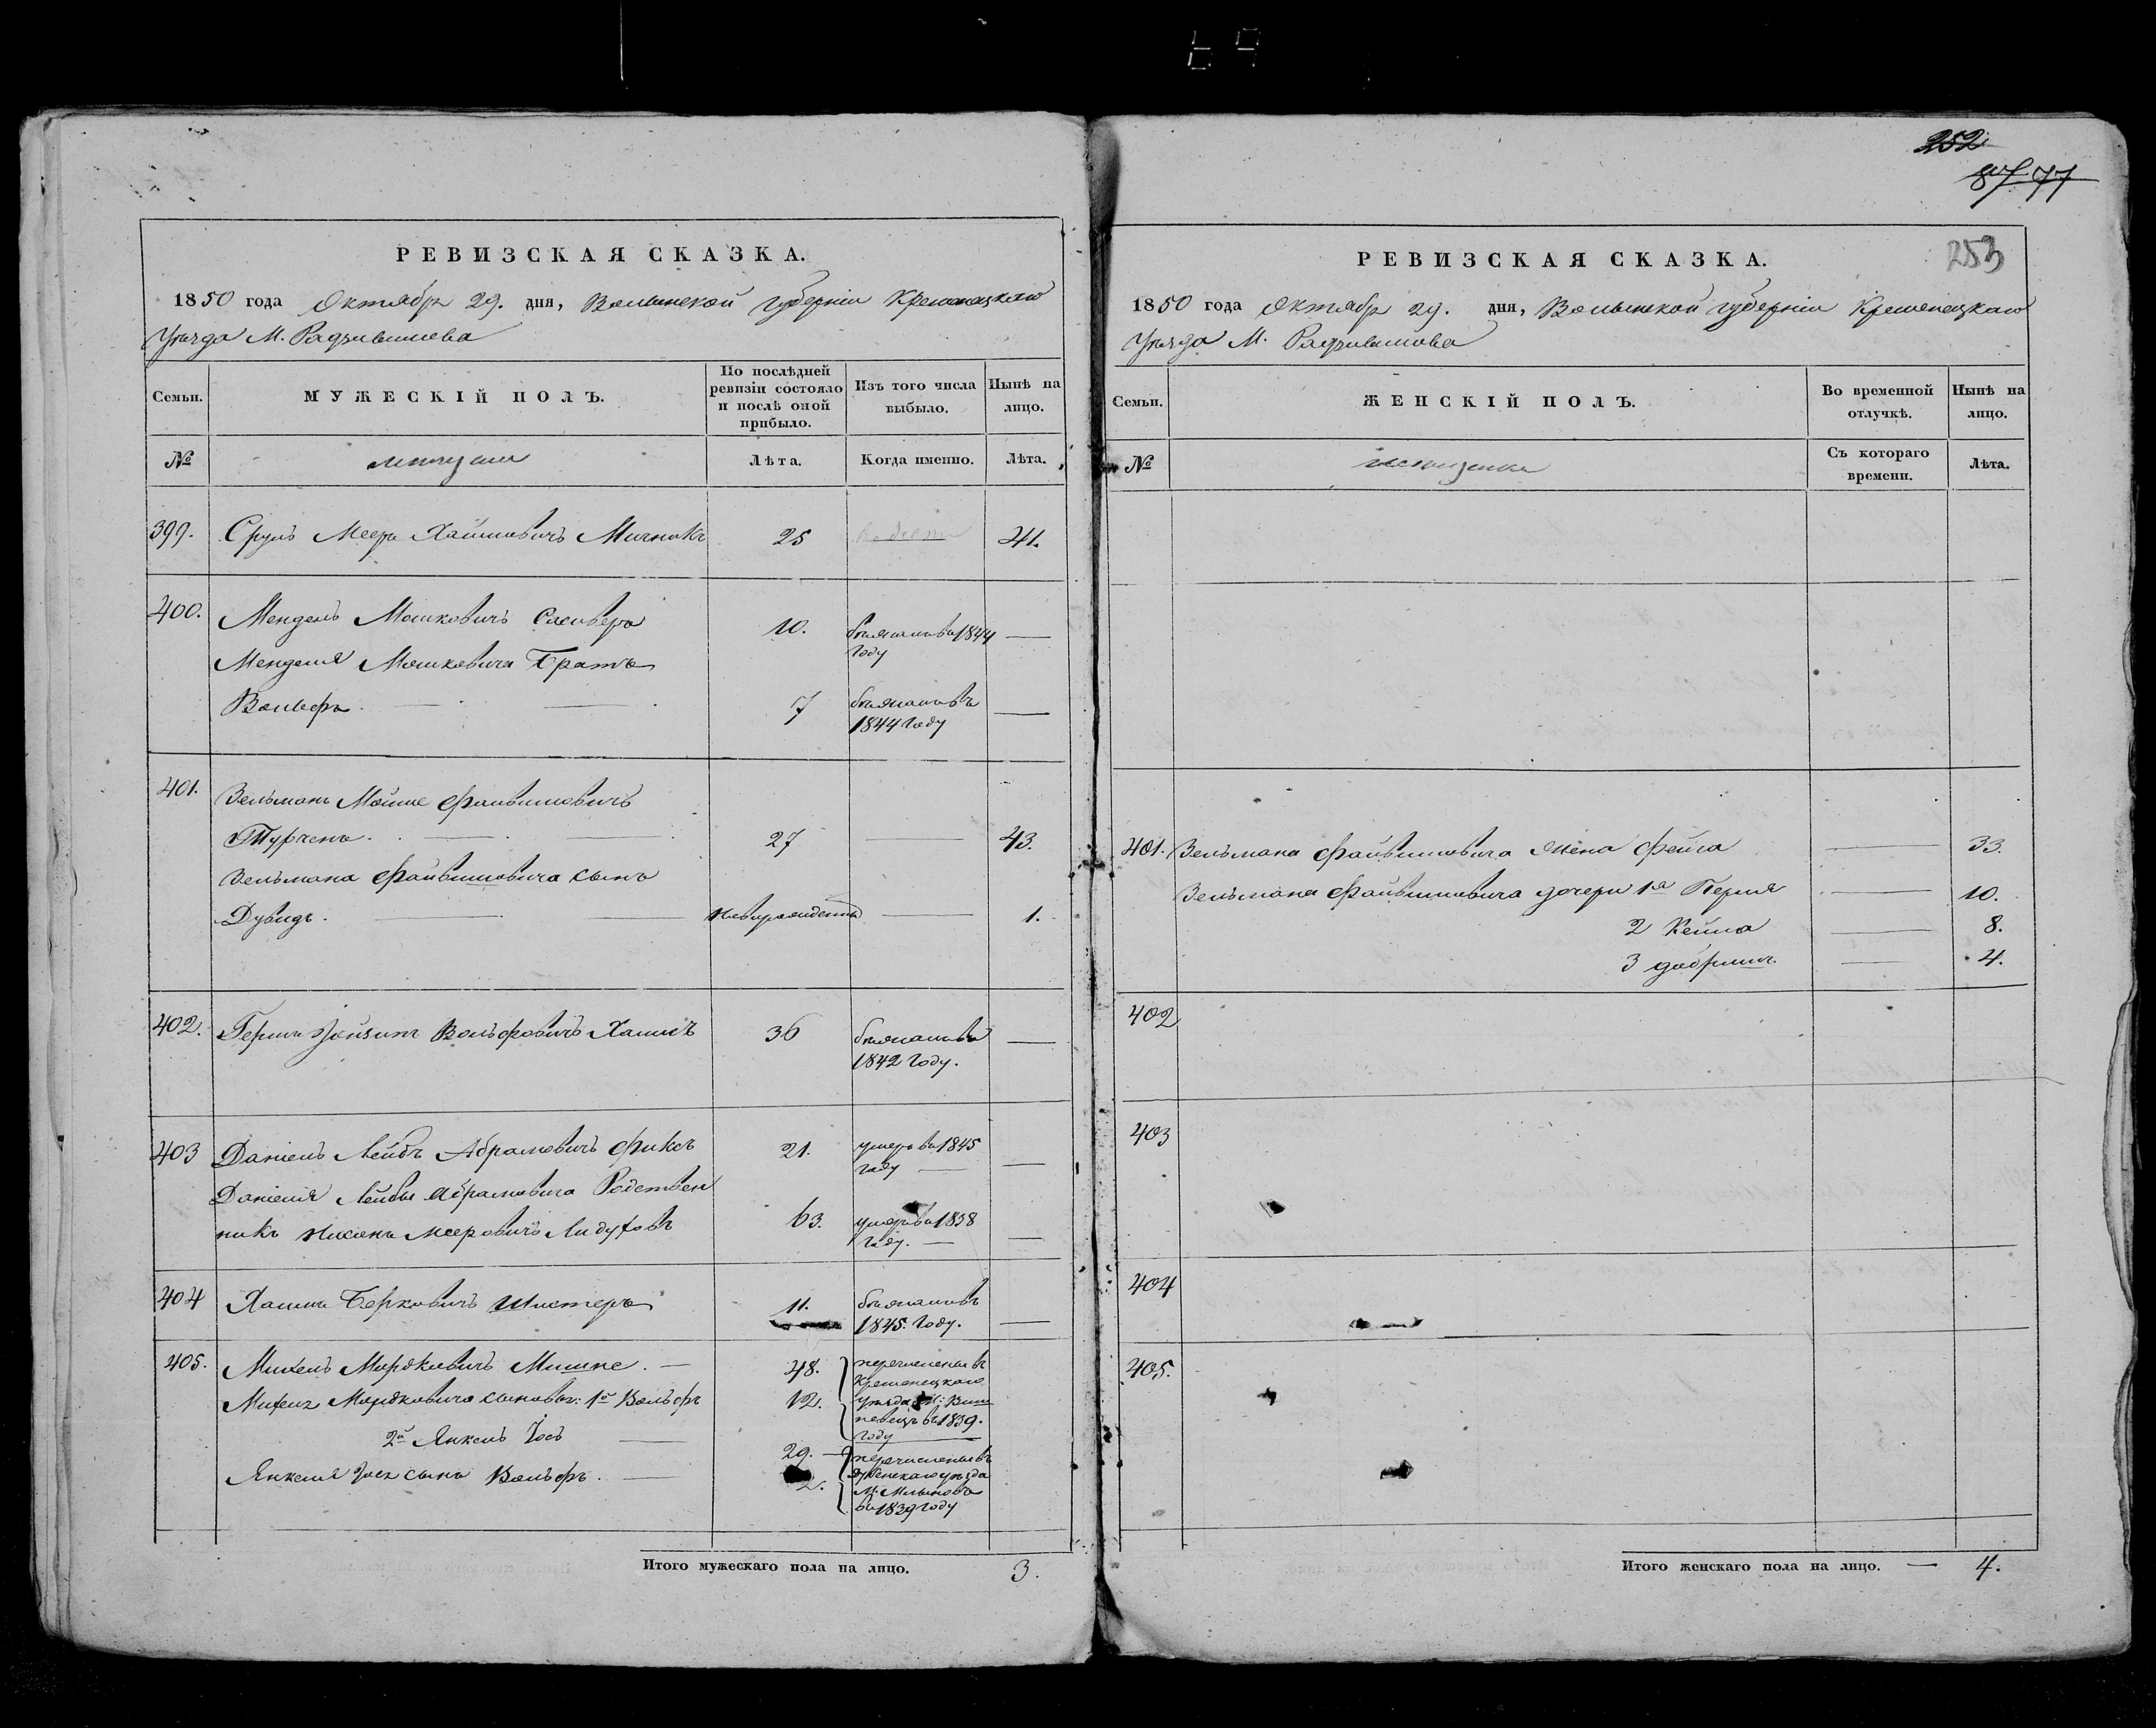 252
87 77
РЕВИЗСКАЯ СКАЗКА.
1850 года Октября 29. дня, Волынской губерніи Кременецкаго
Уѣзда М. Радзивилова
Семьи.
МУЖЕСКІЙ ПОЛЪ.
По послѣдней ревизіи состояло и послѣ оной прибыло.
Изъ того числа выбыло.
Нынѣ на лицо.
№
мещане
Лѣта.
Когда именно.
Лѣта.
399. Сруль Меер Хаимовичъ Мичникъ 25 41.
400. Мендель Мошковичъ 10. бѣжалъ въ 1844 —
Году
Менделя Мошковича Братъ
Вольфъ. 7 бѣжалъ въ —
1844 Году
401. Зельманъ Мойше Файвишовичъ
Турченъ. 27 — 43.
Зельмана Файвишовича сынъ
Дувидъ. новорожденный — 1.
402. Гершъ Вольфовичъ 36 бѣжалъ въ —
1842 Году.
403 Даніель Лейбъ Абрамовичъ Фиксъ 21. умеръ въ 1845 —
году —
Даніеля Лейбы Абрамовича Родствен
никъ Нисонъ Мееровичъ 63. умеръ въ 1838 —
Году. —
404 Хаимъ Берковичъ Шистеръ 11. бѣжалъ въ —
1845. Году.
405. Михель Мордковичъ Мишне. — 48. перечисленъ въ
Кременецкаго
Михеля Мордковича сыновья: 1й Вольфъ 12. уѣзда М: Виш
невецъ въ 1839.
году
2й Янкель Іось — 29. — перечисленъ въ
Дубенскаго уѣзда
Янкеля Іося сынъ Вольфъ. — 2. М: Млыновъ
въ 1839 году
Итого мужескаго пола на лицо. 3.
РЕВИЗСКАЯ СКАЗКА.
253
1850 года Октября 29. дня, Волынской губерніи Кременецкаго
Уѣзда М. Радзивилова
Семьи.
ЖЕНСКІЙ ПОЛЪ.
Во временной отлучкѣ.
Нынѣ на лицо.
№
мещанки
Съ котораго времени.
Лѣта.
401. Зельмана Файвишовича жена Фейга — 33.
Зельмана Файвишовича дочери 1я Перля — 10.
2 Кейла — 8.
3 Добрышъ. — 4.
402
403
404
405.
Итого женскаго пола на лицо. — 4.